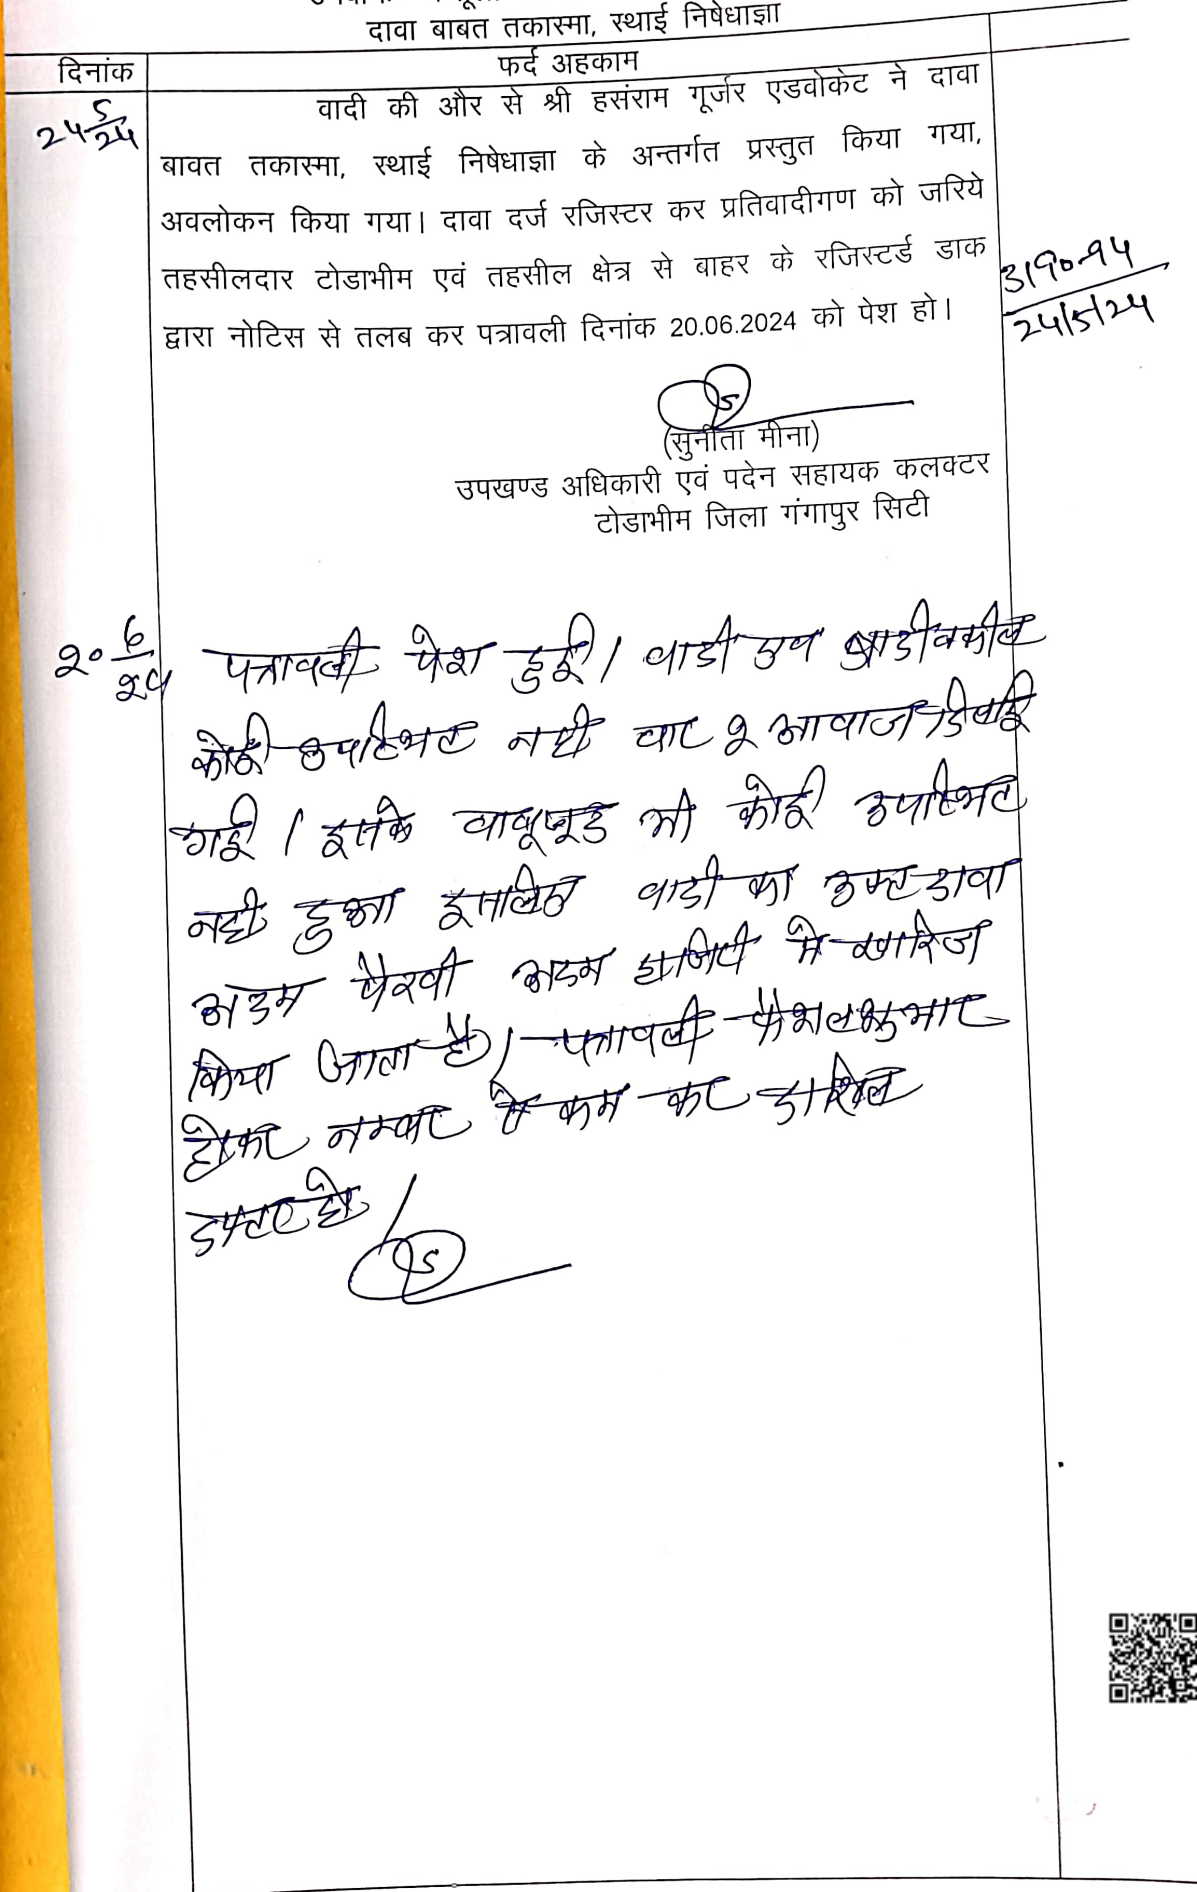 दावा बाबत तकास्मा, स्थाई निषेधाज्ञा
दिनांक
फर्द अहकाम
24 5/24
वादी की और से श्री हसंराम गूर्जर एडवोकेट ने दावा
बावत तकास्मा, स्थाई निषेधाज्ञा के अन्तर्गत प्रस्तुत किया गया,
अवलोकन किया गया। दावा दर्ज रजिस्टर कर प्रतिवादीगण को जरिये
तहसीलदार टोडाभीम एवं तहसील क्षेत्र से बाहर के रजिस्टर्ड डाक
द्वारा नोटिस से तलब कर पत्रावली दिनांक 20.06.2024 को पेश हो।
24/5/24
(सुनीता मीना)
उपखण्ड अधिकारी एवं पदेन सहायक कलक्टर
टोडाभीम जिला गंगापुर सिटी
२० 6/२४
पत्रावली पेश हुई। वादी वकील
कोई उपस्थित नही बार २ आवाज दिवाई
गई। इसके वावूजूद भी कोई उपस्थित
नही हुआ इसलिए वादी का उक्त दावा
अदम पैरवी अदम हाजिरी मे खारिज
किया जाता है। पत्रावली फैशलशुमार
होकर नम्बर से कम कर दाखिल
दफ्तर हो।